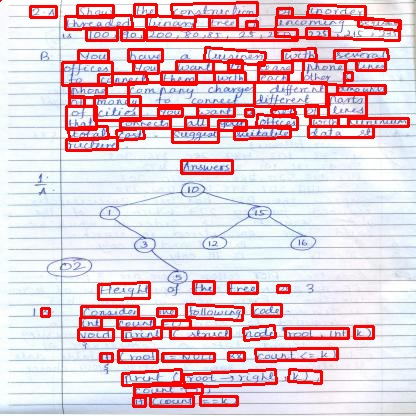 2. A Show the construction of inorder
threaded binary tree incoming
is 100, 90, 200, 80, 85, 25, 225, 215,
B. You have a business with several
offices. You want to lease phone lines
to connect them with each other
phone company charges different
of money to connect different parts
of cities. You want of lines
that connects all your offices with minimum
total cost. Suggest suitable data st
ructure.
Answers
1.
1.
10
1 15
3 12 16
02
5
Height of the tree 3
1. Consider the following code
int count = 0;
void print (struct node root, int k)
{
if (root != NULL && count <= k)
{
print (root → right, k);
count
if (count == k)